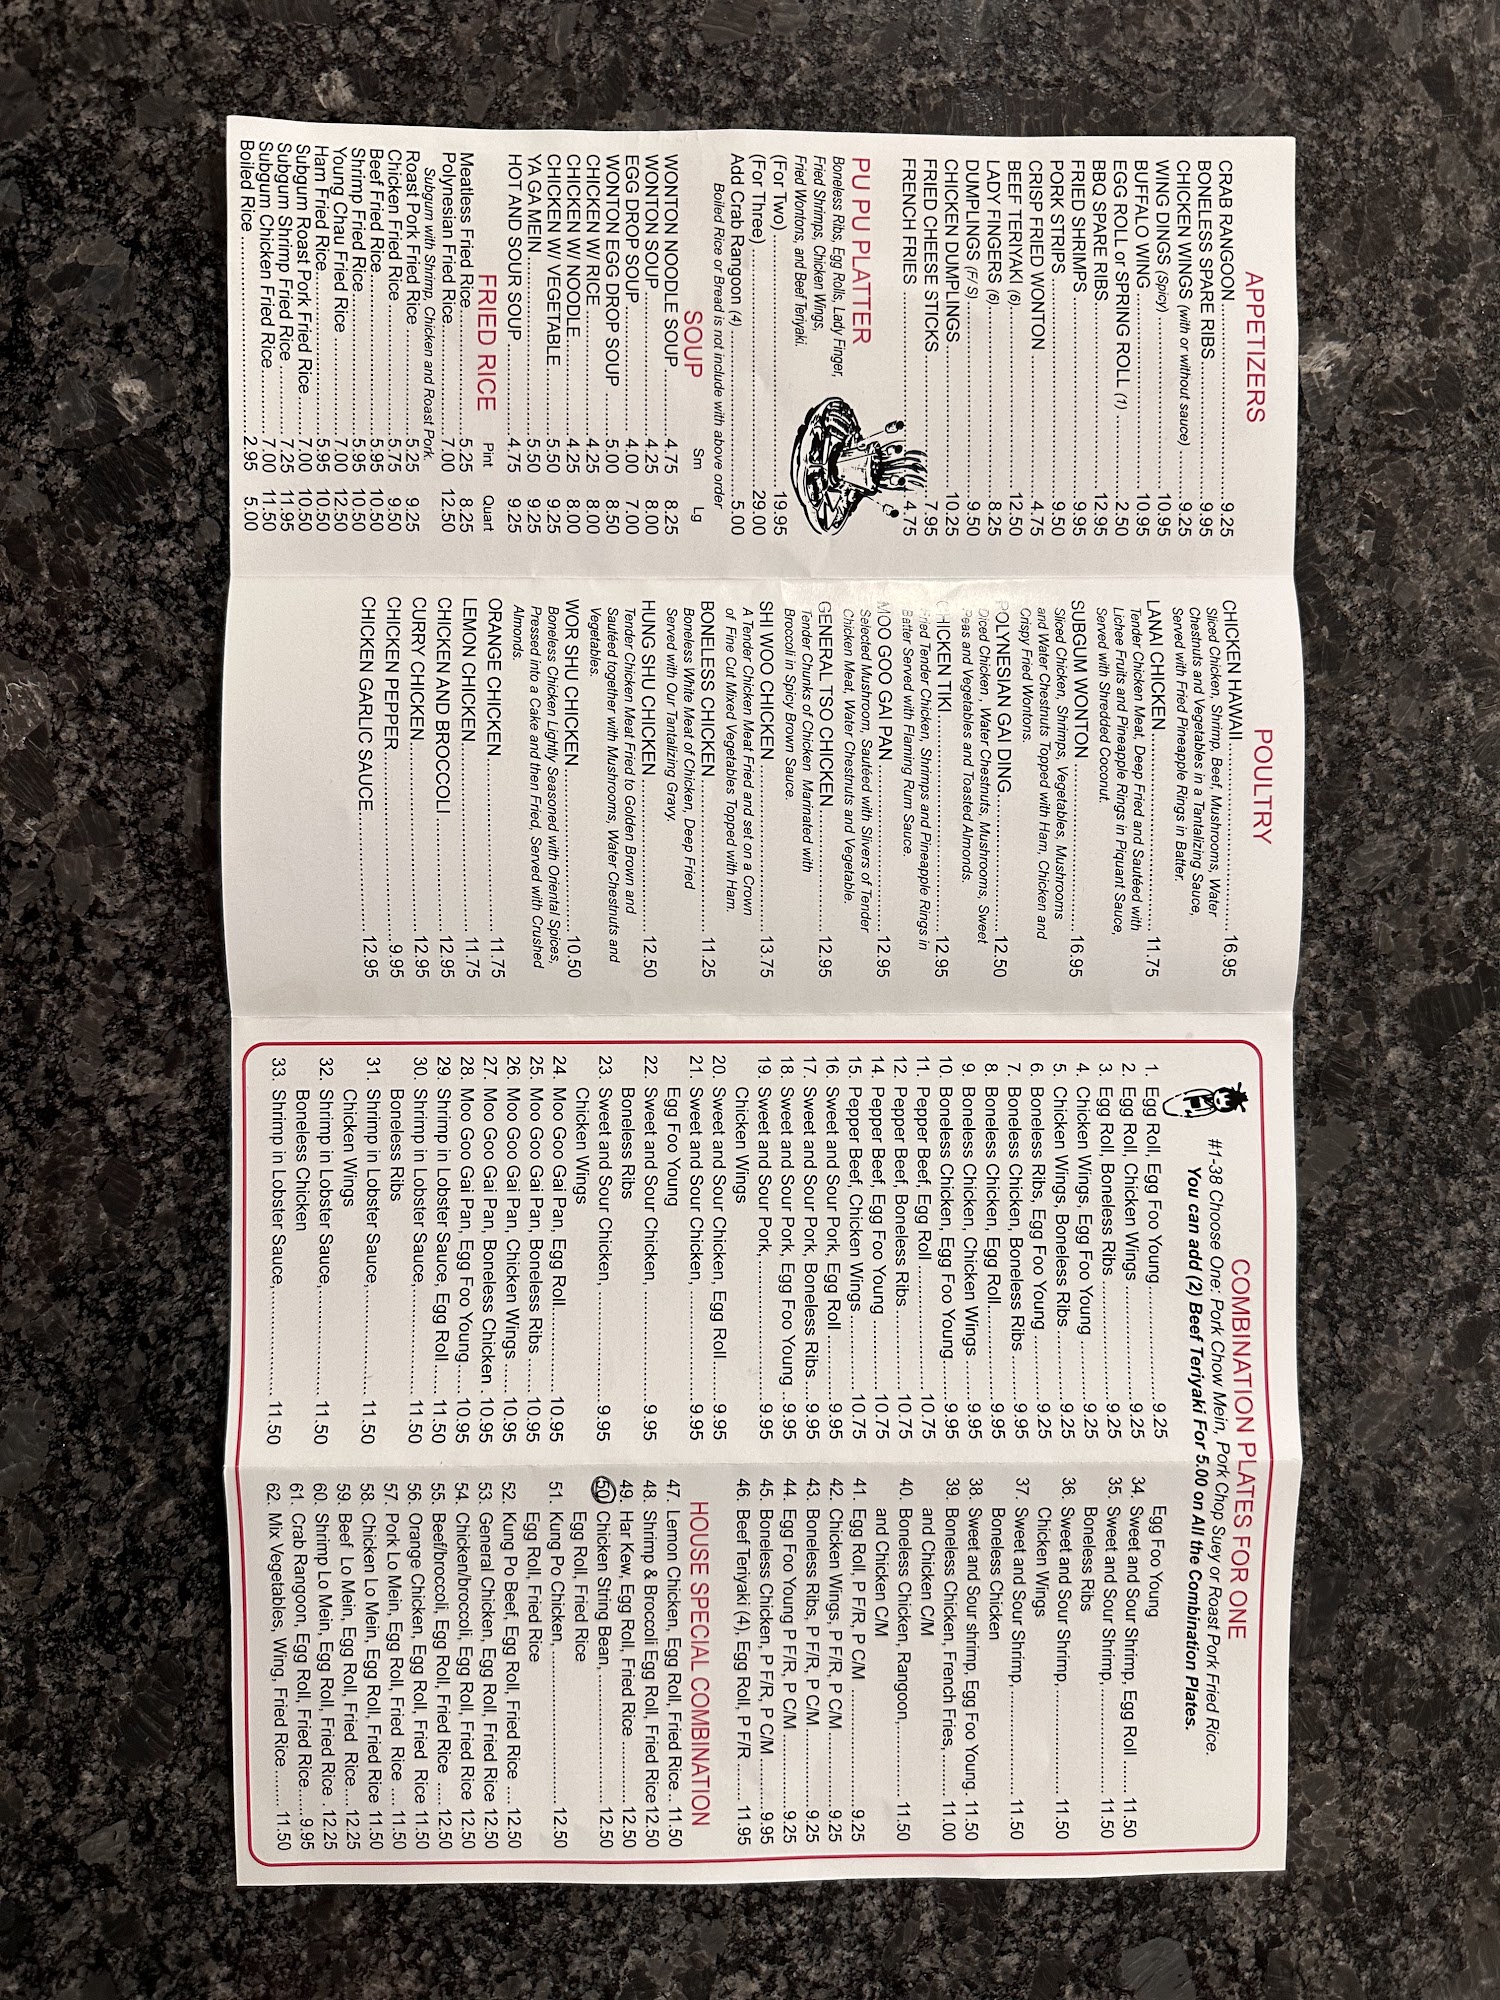 APPETIZERS
CRAB RANGOON 9.25
BONELESS SPARE RIBS 9.95
CHICKEN WINGS (with or without sauce) 9.25
WING DINGS (Spicy) 10.95
BUFFALO WING 10.95
EGG ROLL or SPRING ROLL (1) 2.50
BBQ SPARE RIBS 12.95
FRIED SHRIMPS 9.95
PORK STRIPS 9.50
CRISP FRIED WONTON 4.75
BEEF TERIYAKI (6) 12.50
LADY FINGERS (6) 8.25
DUMPLINGS (F/ S) 9.50
CHICKEN DUMPLINGS 10.25
FRIED CHEESE STICKS 7.95
FRENCH FRIES 4.75
PU PU PLATTER
Boneless Ribs, Egg Rolls, Lady Finger,
Fried Shrimps, Chicken Wings,
Fried Wontons, and Beef Teriyaki.
(For Two) 19.95
(For Three) 29.00
Add Crab Rangoon (4) 5.00
Boiled Rice or Bread is not include with above order
SOUP Sm Lg
WONTON NOODLE SOUP 4.75 8.25
WONTON SOUP 4.25 8.00
EGG DROP SOUP 4.00 7.00
WONTON EGG DROP SOUP 5.00 8.50
CHICKEN W/ RICE 4.25 8.00
CHICKEN W/ NOODLE 4.25 8.00
CHICKEN W/ VEGETABLE 5.50 9.25
YA GA MEIN 5.50 9.25
HOT AND SOUR SOUP 4.75 9.25
FRIED RICE Pint Quart
Meatless Fried Rice 5.25 8.25
Polynesian Fried Rice 7.00 12.50
Subgum with Shrimp, Chicken and Roast Pork.
Roast Pork Fried Rice 5.25 9.25
Chicken Fried Rice 5.75 9.50
Beef Fried Rice 5.95 10.50
Shrimp Fried Rice 5.95 10.50
Young Chau Fried Rice 7.00 12.50
Ham Fried Rice 5.95 10.50
Subgum Roast Pork Fried Rice 7.00 10.50
Subgum Shrimp Fried Rice 7.25 11.95
Subgum Chicken Fried Rice 7.00 11.50
Boiled Rice 2.95 5.00
POULTRY
CHICKEN HAWAII 16.95
Sliced Chicken, Shrimp, Beef, Mushrooms, Water
Chestnuts and Vegetables in a Tantalizing Sauce,
Served with Fried Pineapple Rings in Batter.
LANAI CHICKEN 11.75
Tender Chicken Meat, Deep Fried and Sautéed with
Lichee Fruits and Pineapple Rings in Piquant Sauce,
Served with Shredded Coconut.
SUBGUM WONTON 16.95
Sliced Chicken, Shrimps, Vegetables, Mushrooms
and Water Chestnuts Topped with Ham, Chicken and
Crispy Fried Wontons.
POLYNESIAN GAI DING 12.50
Diced Chicken , Water Chestnuts, Mushrooms, Sweet
Peas and Vegetables and Toasted Almonds.
CHICKEN TIKI 12.95
Fried Tender Chicken, Shrimps and Pineapple Rings in
Batter Served with Flaming Rum Sauce.
MOO GOO GAI PAN 12.95
Selected Mushroom, Sautéed with Slivers of Tender
Chicken Meat, Water Chestnuts and Vegetable.
GENERAL TSO CHICKEN 12.95
Tender Chunks of Chicken Marinated with
Broccoli in Spicy Brown Sauce.
SHI WOO CHICKEN 13.75
A Tender Chicken Meat Fried and set on a Crown
of Fine Cut Mixed Vegetables Topped with Ham.
BONELESS CHICKEN 11.25
Boneless White Meat of Chicken, Deep Fried
Served with Our Tantalizing Gravy.
HUNG SHU CHICKEN 12.50
Tender Chicken Meat Fried to Golden Brown and
Sautéed together with Mushrooms, Water Chestnuts and
Vegetables.
WOR SHU CHICKEN 10.50
Boneless Chicken Lightly Seasoned with Oriental Spices,
Pressed into a Cake and then Fried, Served with Crushed
Almonds.
ORANGE CHICKEN 11.75
LEMON CHICKEN 11.75
CHICKEN AND BROCCOLI 12.95
CURRY CHICKEN 12.95
CHICKEN PEPPER 9.95
CHICKEN GARLIC SAUCE 12.95
COMBINATION PLATES FOR ONE
#1-38 Choose One: Pork Chow Mein, Pork Chop Suey or Roast Pork Fried Rice.
You can add (2) Beef Teriyaki For 5.00 on All the Combination Plates.
1. Egg Roll, Egg Foo Young 9.25
2. Egg Roll, Chicken Wings 9.25
3. Egg Roll, Boneless Ribs 9.25
4. Chicken Wings, Egg Foo Young 9.25
5. Chicken Wings, Boneless Ribs 9.25
6. Boneless Ribs, Egg Foo Young 9.25
7. Boneless Chicken, Boneless Ribs 9.95
8. Boneless Chicken, Egg Roll 9.95
9. Boneless Chicken, Chicken Wings 9.95
10. Boneless Chicken, Egg Foo Young 9.95
11. Pepper Beef, Egg Roll 10.75
12. Pepper Beef, Boneless Ribs 10.75
14. Pepper Beef, Egg Foo Young 10.75
15. Pepper Beef, Chicken Wings 10.75
16. Sweet and Sour Pork, Egg Roll 9.95
17. Sweet and Sour Pork, Boneless Ribs 9.95
18. Sweet and Sour Pork, Egg Foo Young 9.95
19. Sweet and Sour Pork, 9.95
Chicken Wings
20. Sweet and Sour Chicken, Egg Roll 9.95
21. Sweet and Sour Chicken, 9.95
Egg Foo Young
22. Sweet and Sour Chicken, 9.95
Boneless Ribs
23. Sweet and Sour Chicken, 9.95
Chicken Wings
24. Moo Goo Gai Pan, Egg Roll 10.95
25. Moo Goo Gai Pan, Boneless Ribs 10.95
26. Moo Goo Gai Pan, Chicken Wings 10.95
27. Moo Goo Gai Pan, Boneless Chicken 10.95
28. Moo Goo Gai Pan, Egg Foo Young 10.95
29. Shrimp in Lobster Sauce, Egg Roll 11.50
30. Shrimp in Lobster Sauce, 11.50
Boneless Ribs
31. Shrimp in Lobster Sauce, 11.50
Chicken Wings
32. Shrimp in Lobster Sauce, 11.50
Boneless Chicken
33. Shrimp in Lobster Sauce, 11.50
Egg Foo Young
34. Sweet and Sour Shrimp, Egg Roll 11.50
35. Sweet and Sour Shrimp, 11.50
Boneless Ribs
36. Sweet and Sour Shrimp, 11.50
Chicken Wings
37. Sweet and Sour Shrimp, 11.50
Boneless Chicken
38. Sweet and Sour shrimp, Egg Foo Young 11.50
39. Boneless Chicken, French Fries, 11.00
and Chicken C/M
40. Boneless Chicken, Rangoon, 11.50
and Chicken C/M
41. Egg Roll, P F/R, P C/M 9.25
42. Chicken Wings, P F/R, P C/M 9.25
43. Boneless Ribs, P F/R, P C/M 9.25
44. Egg Foo Young P F/R, P C/M 9.25
45. Boneless Chicken, P F/R, P C/M 9.95
46. Beef Teriyaki (4), Egg Roll, P F/R 11.95
HOUSE SPECIAL COMBINATION
47. Lemon Chicken, Egg Roll, Fried Rice 11.50
48. Shrimp & Broccoli Egg Roll, Fried Rice 12.50
49. Har Kew, Egg Roll, Fried Rice 12.50
50. Chicken String Bean, 12.50
Egg Roll, Fried Rice
51. Kung Po Chicken, 12.50
Egg Roll, Fried Rice
52. Kung Po Beef, Egg Roll, Fried Rice 12.50
53. General Chicken, Egg Roll, Fried Rice 12.50
54. Chicken/broccoli, Egg Roll, Fried Rice 12.50
55. Beef/broccoli, Egg Roll, Fried Rice 12.50
56. Orange Chicken, Egg Roll, Fried Rice 11.50
57. Pork Lo Mein, Egg Roll, Fried Rice 11.50
58. Chicken Lo Mein, Egg Roll, Fried Rice 11.50
59. Beef Lo Mein, Egg Roll, Fried Rice 12.25
60. Shrimp Lo Mein, Egg Roll, Fried Rice 12.25
61. Crab Rangoon, Egg Roll, Fried Rice 9.95
62. Mix Vegetables, Wing, Fried Rice 11.50